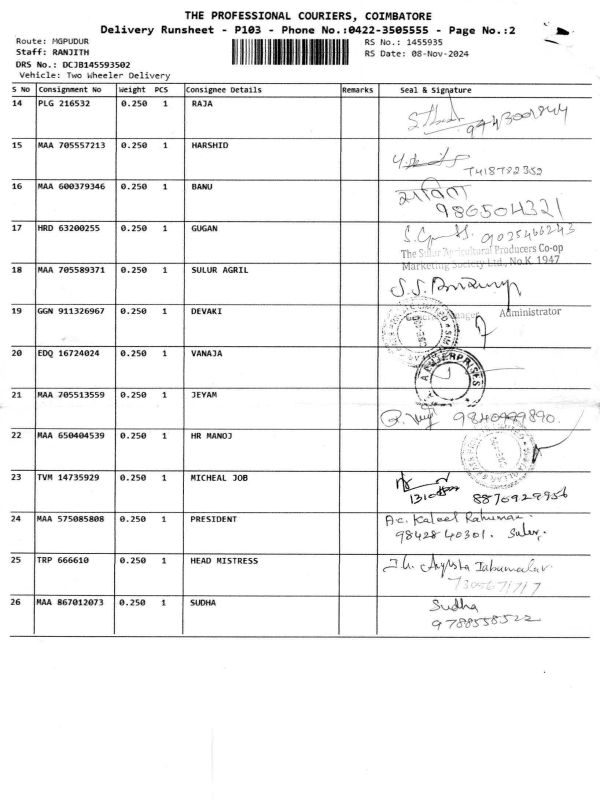 THE PROFESSIONAL COURIERS, COIMBATORE
Delivery Runsheet - P103 - Phone No.:0422-3505555 - Page No.:2
Route: MGPUDUR RS No.: 1455935
Staff: RANJITH RS Date: 08-Nov-2024
DRS No.: DCJB145593502
Vehicle: Two Wheeler Delivery
S No Consignment No Weight PCS Consignee Details Remarks Seal & Signature
14 PLG 216532 0.250 1 RAJA
15 MAA 705557213 0.250 1 HARSHID
7418722352
16 MAA 600379346 0.250 1 BANU
986504321
17 HRD 63200255 0.250 1 GUGAN
9035466243
The Sulur Agricultural Producers Co-op
Marketing Society Ltd., No.K. 1947
18 MAA 705589371 0.250 1 SULUR AGRIL
19 GGN 911326967 0.250 1 DEVAKI
Administrator
20 EDQ 16724024 0.250 1 VANAJA
ENTERPRISES
21 MAA 705513559 0.250 1 JEYAM
22 MAA 650404539 0.250 1 HR MANOJ
23 TVM 14735929 0.250 1 MICHEAL JOB
8870929956
24 MAA 575085808 0.250 1 PRESIDENT
A.C. Kaleel Rahuman.
98428 40301. Sulur.
25 TRP 666610 0.250 1 HEAD MISTRESS
7305671717
26 MAA 867012073 0.250 1 SUDHA
Sudha
9788558522